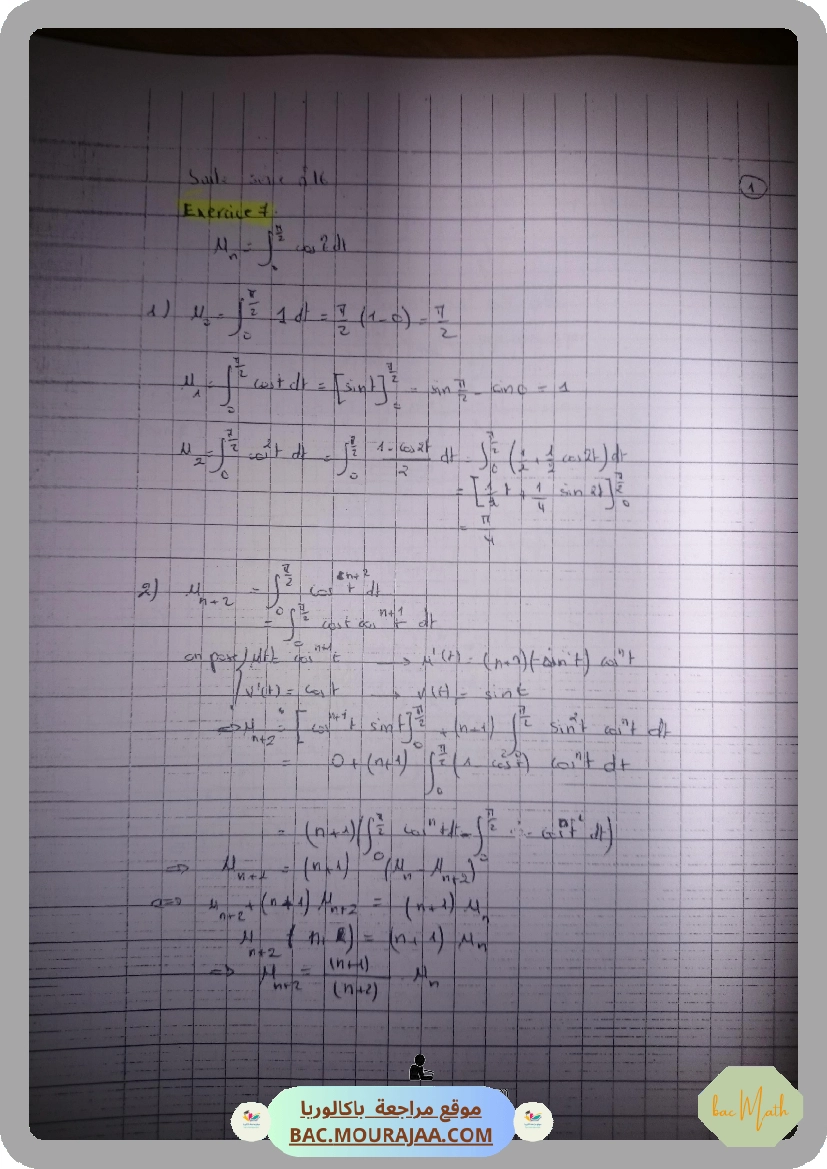 Suite série n°16
1
Exercice 7
μ_n = ∫_0^{π/2} cos^n t dt
1) μ_0 = ∫_0^{π/2} 1 dt = π/2 (1-0) = π/2
μ_1 = ∫_0^{π/2} cos t dt = [sin t]_0^{π/2} = sin π/2 - sin 0 = 1
μ_2 = ∫_0^{π/2} cos² t dt = ∫_0^{π/2} (1-cos2t)/2 dt = ∫_0^{π/2} (1/2 + 1/2 cos2t) dt
= [1/2 t + 1/4 sin 2t]_0^{π/2}
= π/4
2) μ_{n+2} = ∫_0^{π/2} cos^{n+2} t dt
= ∫_0^{π/2} cos t cos^{n+1} t dt
on pose μ(t) = cos^{n+1} t → μ'(t) = (n+1)(-sin t) cos^n t
v'(t) = cos t → v(t) = sin t
⇒ μ_{n+2} = [cos^{n+1} t sin t]_0^{π/2} + (n+1) ∫_0^{π/2} sin² t cos^n t dt
= 0 + (n+1) ∫_0^{π/2} (1 - cos² t) cos^n t dt
= (n+1) (∫_0^{π/2} cos^n t dt - ∫_0^{π/2} cos^{n+2} t dt)
⇒ μ_{n+2} = (n+1) (μ_n - μ_{n+2})
⇔ μ_{n+2} + (n+1) μ_{n+2} = (n+1) μ_n
μ_{n+2} (n+2) = (n+1) μ_n
⇒ μ_{n+2} = (n+1)/(n+2) μ_n
موقع مراجعة باكالوريا
BAC.MOURAJAA.COM
bac Math